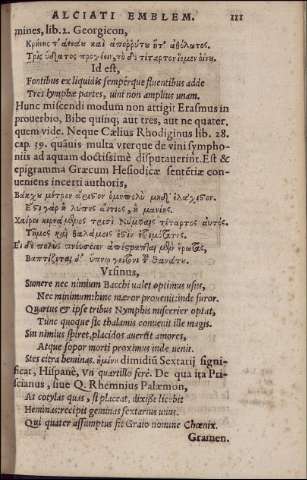 ALCIATI EMBLEM. 111
mines, lib. 2. Georgicon,
Κρήνης τ' ἀενάου καὶ ἀπορρύτου ἥτ' ἀθόλωτος.
Τρὶς ὕδατος προχέειν, τὸ δὲ τέταρτον ἱέμεν οἴνου.
Id est,
Fontibus ex liquidis semperque fluentibus adde
Tres lymphæ partes, vini non amplius unam.
Hunc miscendi modum non attigit Erasmus in
prouerbio, Bibe quinq; aut tres, aut ne quater.
quem vide. Neque Cælius Rhodiginus lib. 28.
cap. 39. quāuis multa vterque de vini sympho-
niis ad aquam doctissimè disputauerint. Est &
epigramma Græcum Hesiodicæ sentētiæ con-
ueniens incerti authoris,
Βάκχου μέτρον ἄριστον ὃ μὴ πολὺ μηδ' ἐλάχιστον.
Ἔστι γὰρ ἢ λύπης αἴτιος, ἢ μανίης.
Χαίρει κιρνάμενος τρισὶ Νύμφαις τέταρτος αὐτός.
Τῆμος καὶ θαλάμοις ἐστὶν ἑτοιμότατος.
Εἰ δὲ πολὺς πνεύσειεν ἀπέστραπται μὲν ἔρωτας,
Βαπτίζεται δ' ὕπνῳ γείτονι τῷ θανάτῳ.
Vrsinus,
Sumere nec nimium Bacchi ualet optimus usus,
Nec minimum: hinc mæror prouenit: inde furor.
Quartus et ipse tribus Nymphis miscerier optat,
Tunc quoque sic thalamis conuenit ille magis.
Sin nimius spiret, placidos auertit amores,
Atque sopor morti proximus inde uenit.
Stes citra heminas. ἡμίνα dimidiū Sextarij signi-
ficat, Hispanè, Vn quartillo ferè. De qua ita Pri-
scianus, siue Q. Rhemnius Palæmon,
At cotylas quas, si placeat, dixisse licebit
Heminas: recipit geminas sextarius unus.
Qui quater assumptus fit Graio nomine Chœnix.
Gramen.